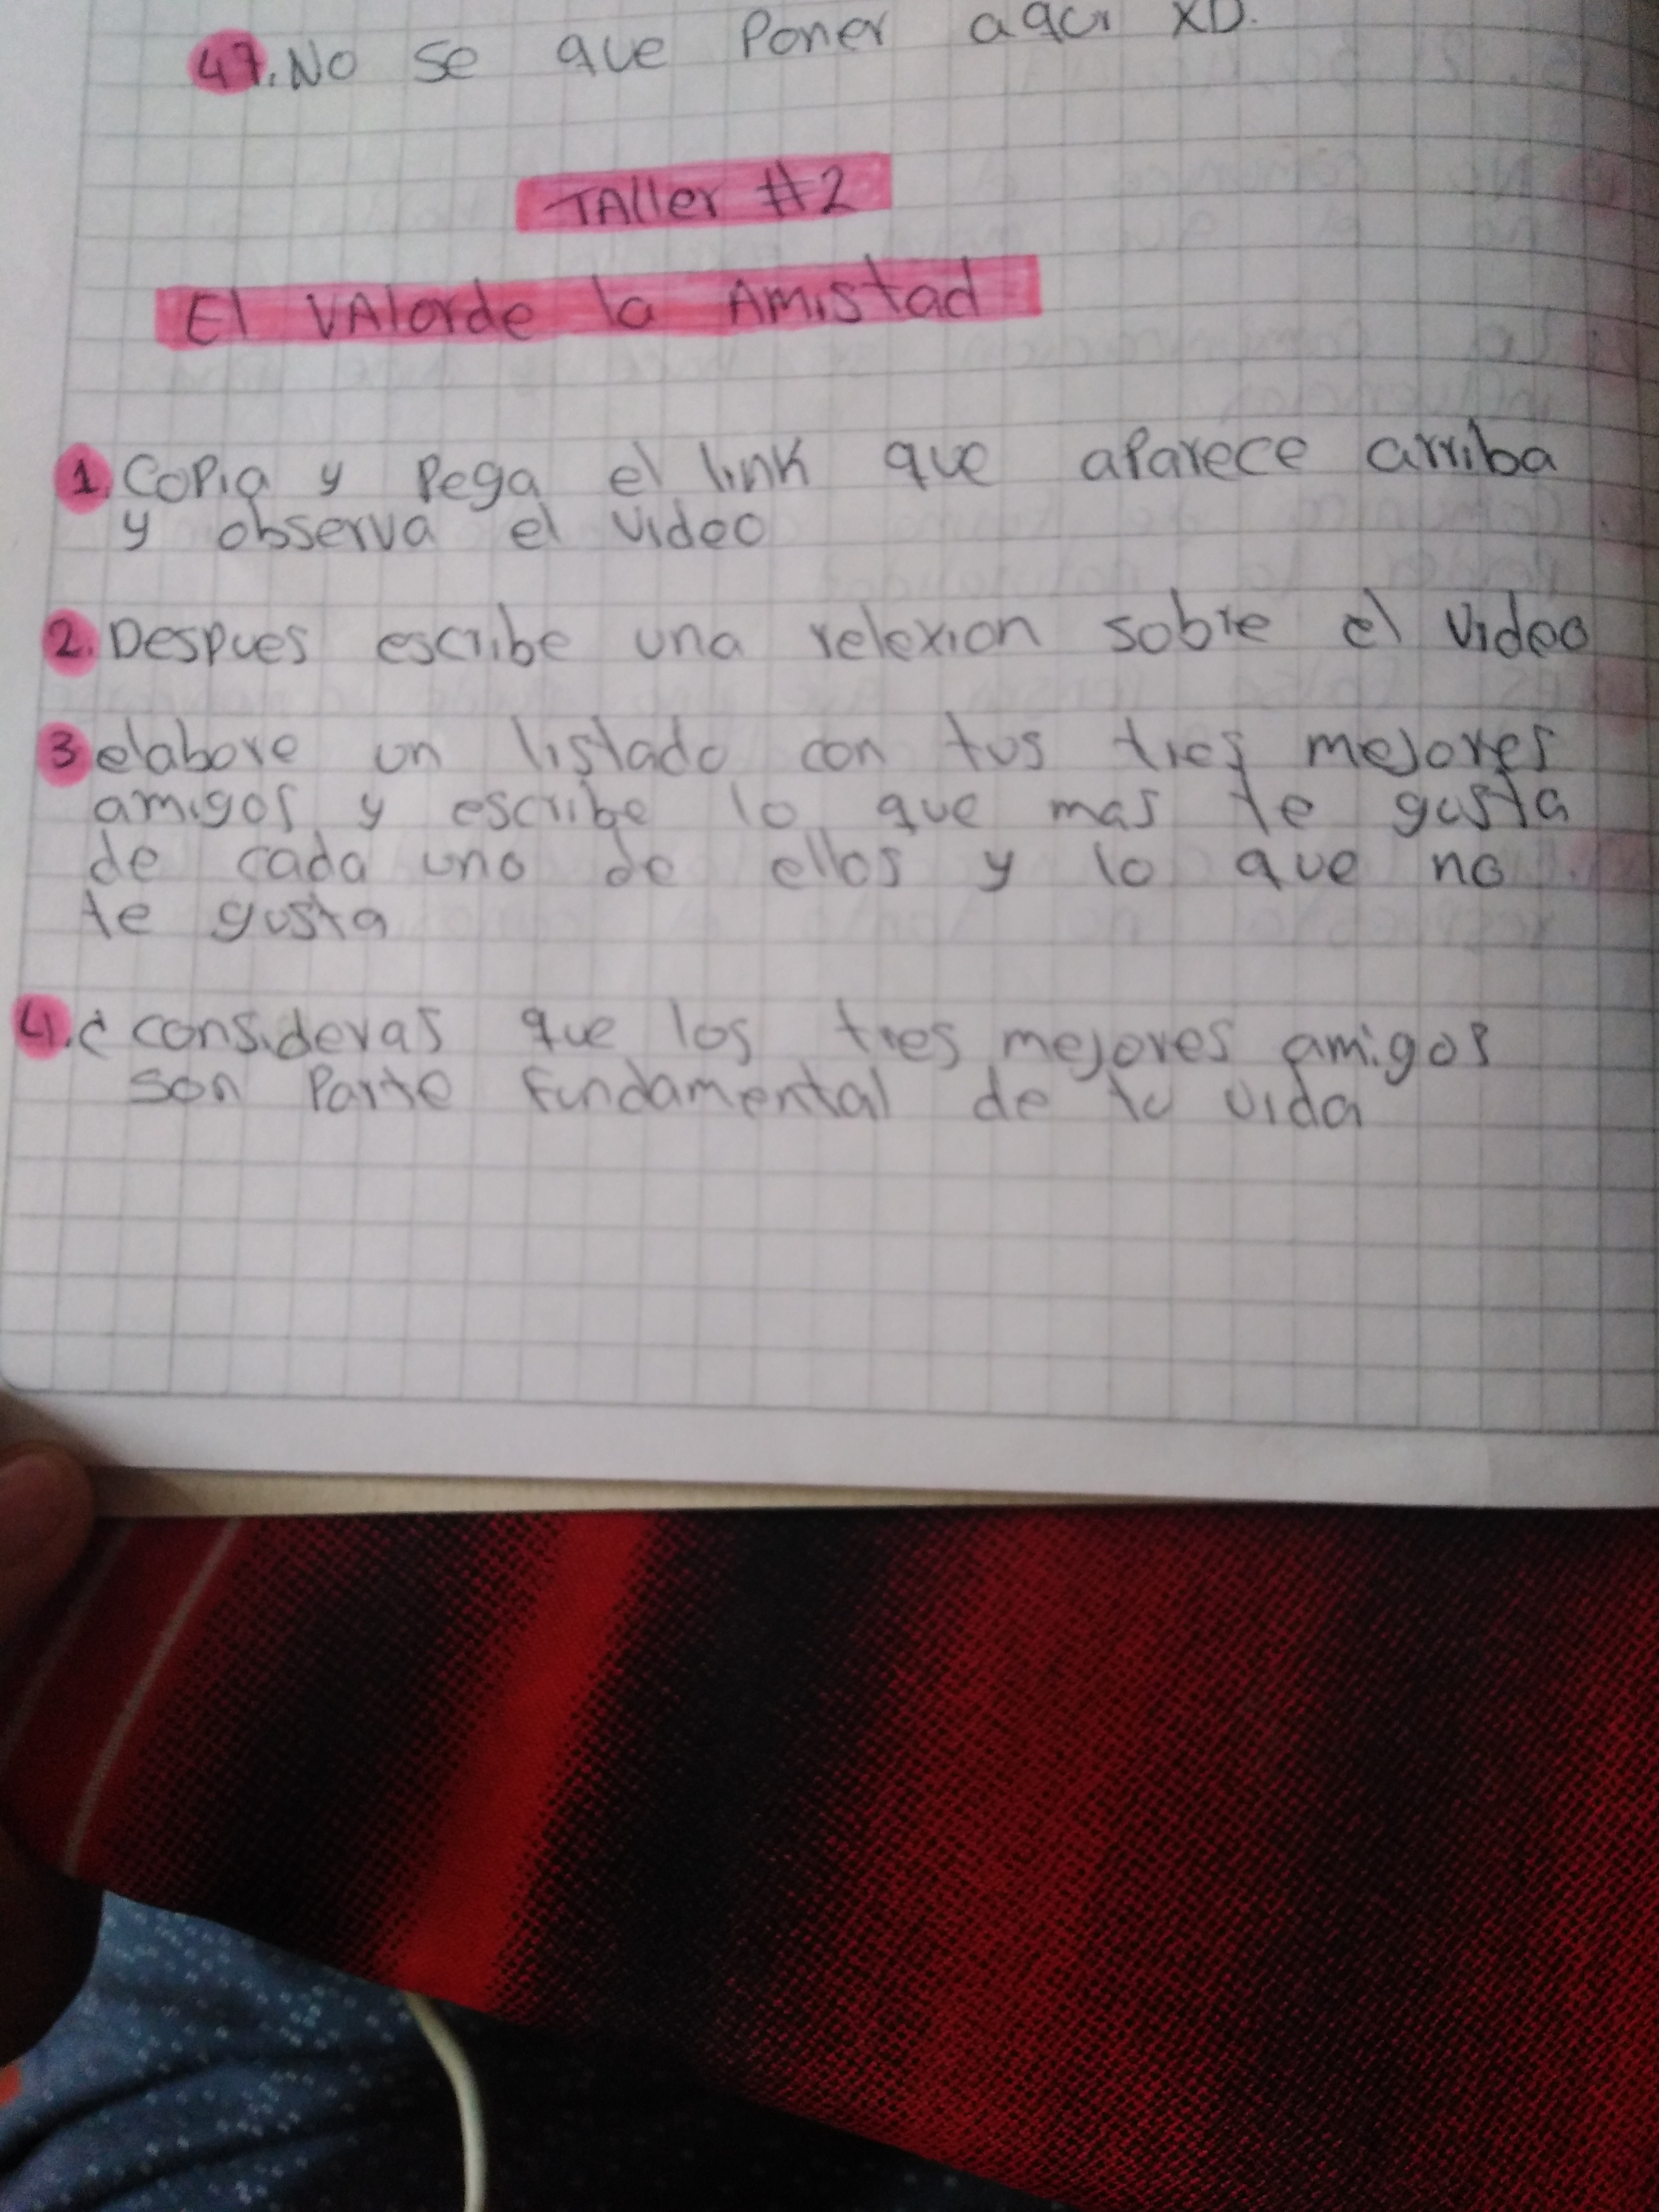 47. No se que Poner aqui XD.
TAller #2
El VAlorde la Amistad
1. Copia y Pega el link que aparece arriba
y observa el video
2. Despues escribe una relexion sobre el Video
3 elabore un listado con tus tres mejores
amigos y escribe lo que mas te gusta
de cada uno de ellos y lo que no
te gusta
4. ¿consideras que los tres mejores amigos
son Parte fundamental de tu vida